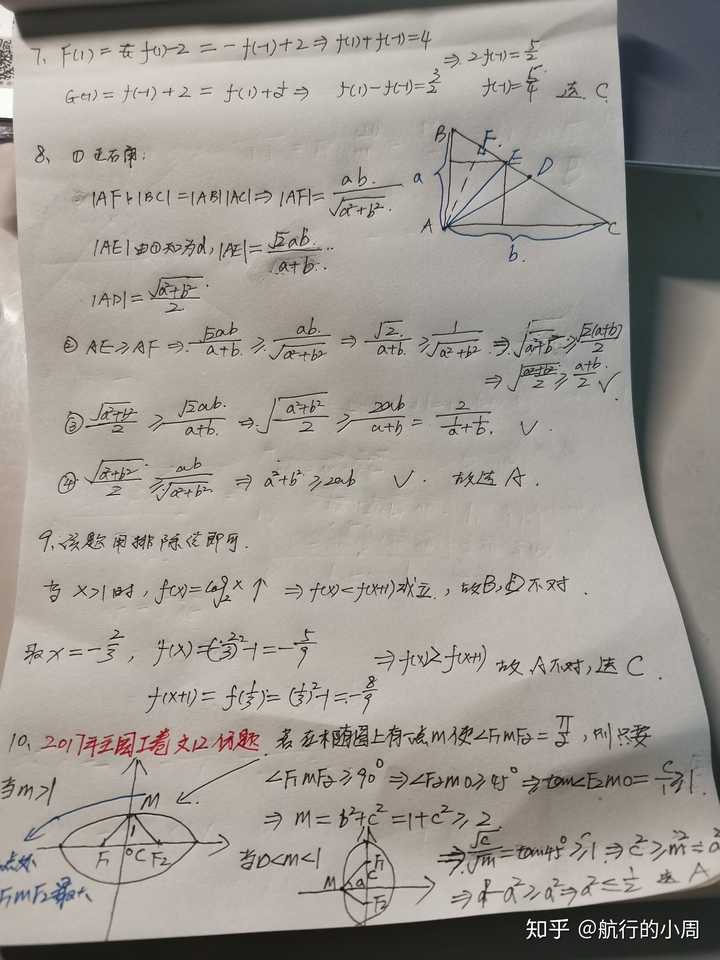 7、F(1) = f(1)-2 = -f(-1)+2 ⇒ f(1)+f(-1)=4
⇒ 2f(-1)=5/2
G(-1) = f(-1)+2 = f(1)+ ⇒ f(1)-f(-1)=3/2 f(-1)=5/4 选 C
8、①
|AF|·|BC|=|AB||AC| ⇒ |AF|=ab/√(a²+b²)
B F E D
a
A C
b
|AE|由①知为d, |AE|=√2ab/(a+b)
|AD|=√(a²+b²)/2
② AE≥AF ⇒ √2ab/(a+b) ≥ ab/√(a²+b²) ⇒ √2/(a+b) ≥ 1/√(a²+b²) ⇒ √(a²+b²) ≥ √2(a+b)/2
⇒ √((a²+b²)/2) ≥ (a+b)/2 √
③ √(a²+b²)/2 ≥ √2ab/(a+b) ⇒ √((a²+b²)/2) ≥ 2ab/(a+b) = 2/(1/a+1/b) √
④ √(a²+b²)/2 ≥ ab/√(a²+b²) ⇒ a²+b² ≥ 2ab √ 故选 A.
9、该题用排除法即可.
当 x>1时, f(x)=log₂x ↑ ⇒ f(x)<f(x+1)成立, 故B,D不对.
取x=-2/3, f(x)=(-2/3)²-1=-5/9
⇒ f(x)≥f(x+1) 故 A不对, 选 C.
f(x+1) = f(1/3)=(1/3)²-1=-8/9
10、2017年全国I卷文12 题. 若在椭圆上有一点M使∠F₁MF₂=π/2, 则只要
当m>1
∠F₁MF₂≥90° ⇒ ∠F₂MO≥45° ⇒ tan∠F₂MO=c/1≥1
M
1
F₁ O C F₂
⇒ m=b²+c²=1+c²≥2
当0<m<1
F₁
C
M a
F₂
⇒ =tan45°≥1 ⇒ c²≥m²=a²
F₁MF₂最大
⇒ 1-a²≥a² ⇒ a²≤1/2 选 A
知乎 @航行的小周